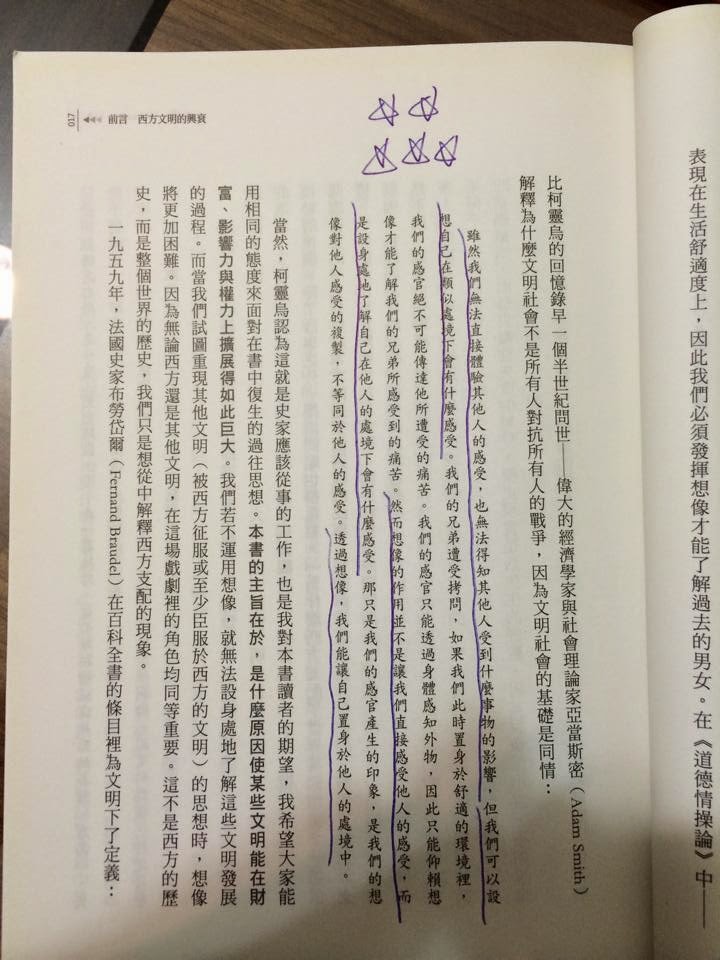 表現在生活舒適度上，因此我們必須發揮想像才能了解過去的男女。在《道德情操論》中——
比柯靈烏的回憶錄早一個半世紀問世——偉大的經濟學家與社會理論家亞當斯密（Adam Smith）
解釋為什麼文明社會不是所有人對抗所有人的戰爭，因為文明社會的基礎是同情：
雖然我們無法直接體驗其他人的感受，也無法得知其他人受到什麼事物的影響，但我們可以設
想自己在類似處境下會有什麼感受。我們的兄弟遭受拷問，如果我們此時置身於舒適的環境裡，
我們的感官絕不可能傳達他所遭受的痛苦。我們的感官只能透過身體感知外物，因此只能仰賴想
像才能了解我們的兄弟所感受到的痛苦。然而想像的作用並不是讓我們直接感受他人的感受，而
是設身處地了解自己在他人的處境下會有什麼感受。那只是我們的感官產生的印象，是我們的想
像對他人感受的複製，不等同於他人的感受。透過想像，我們能讓自己置身於他人的處境中。
當然，柯靈烏認為這就是史家應該從事的工作，也是我對本書讀者的期望，我希望大家能
用相同的態度來面對在書中復生的過往思想。本書的主旨在於，是什麼原因使某些文明能在財
富、影響力與權力上擴展得如此巨大。我們若不運用想像，就無法設身處地了解這些文明發展
的過程。而當我們試圖重現其他文明（被西方征服或至少臣服於西方的文明）的思想時，想像
將更加困難。因為無論西方還是其他文明，在這場戲劇裡的角色均同等重要。這不是西方的歷
史，而是整個世界的歷史，我們只是想從中解釋西方支配的現象。
一九五九年，法國史家布勞岱爾（Fernand Braudel）在百科全書的條目裡為文明下了定義：
017 前言 西方文明的興衰